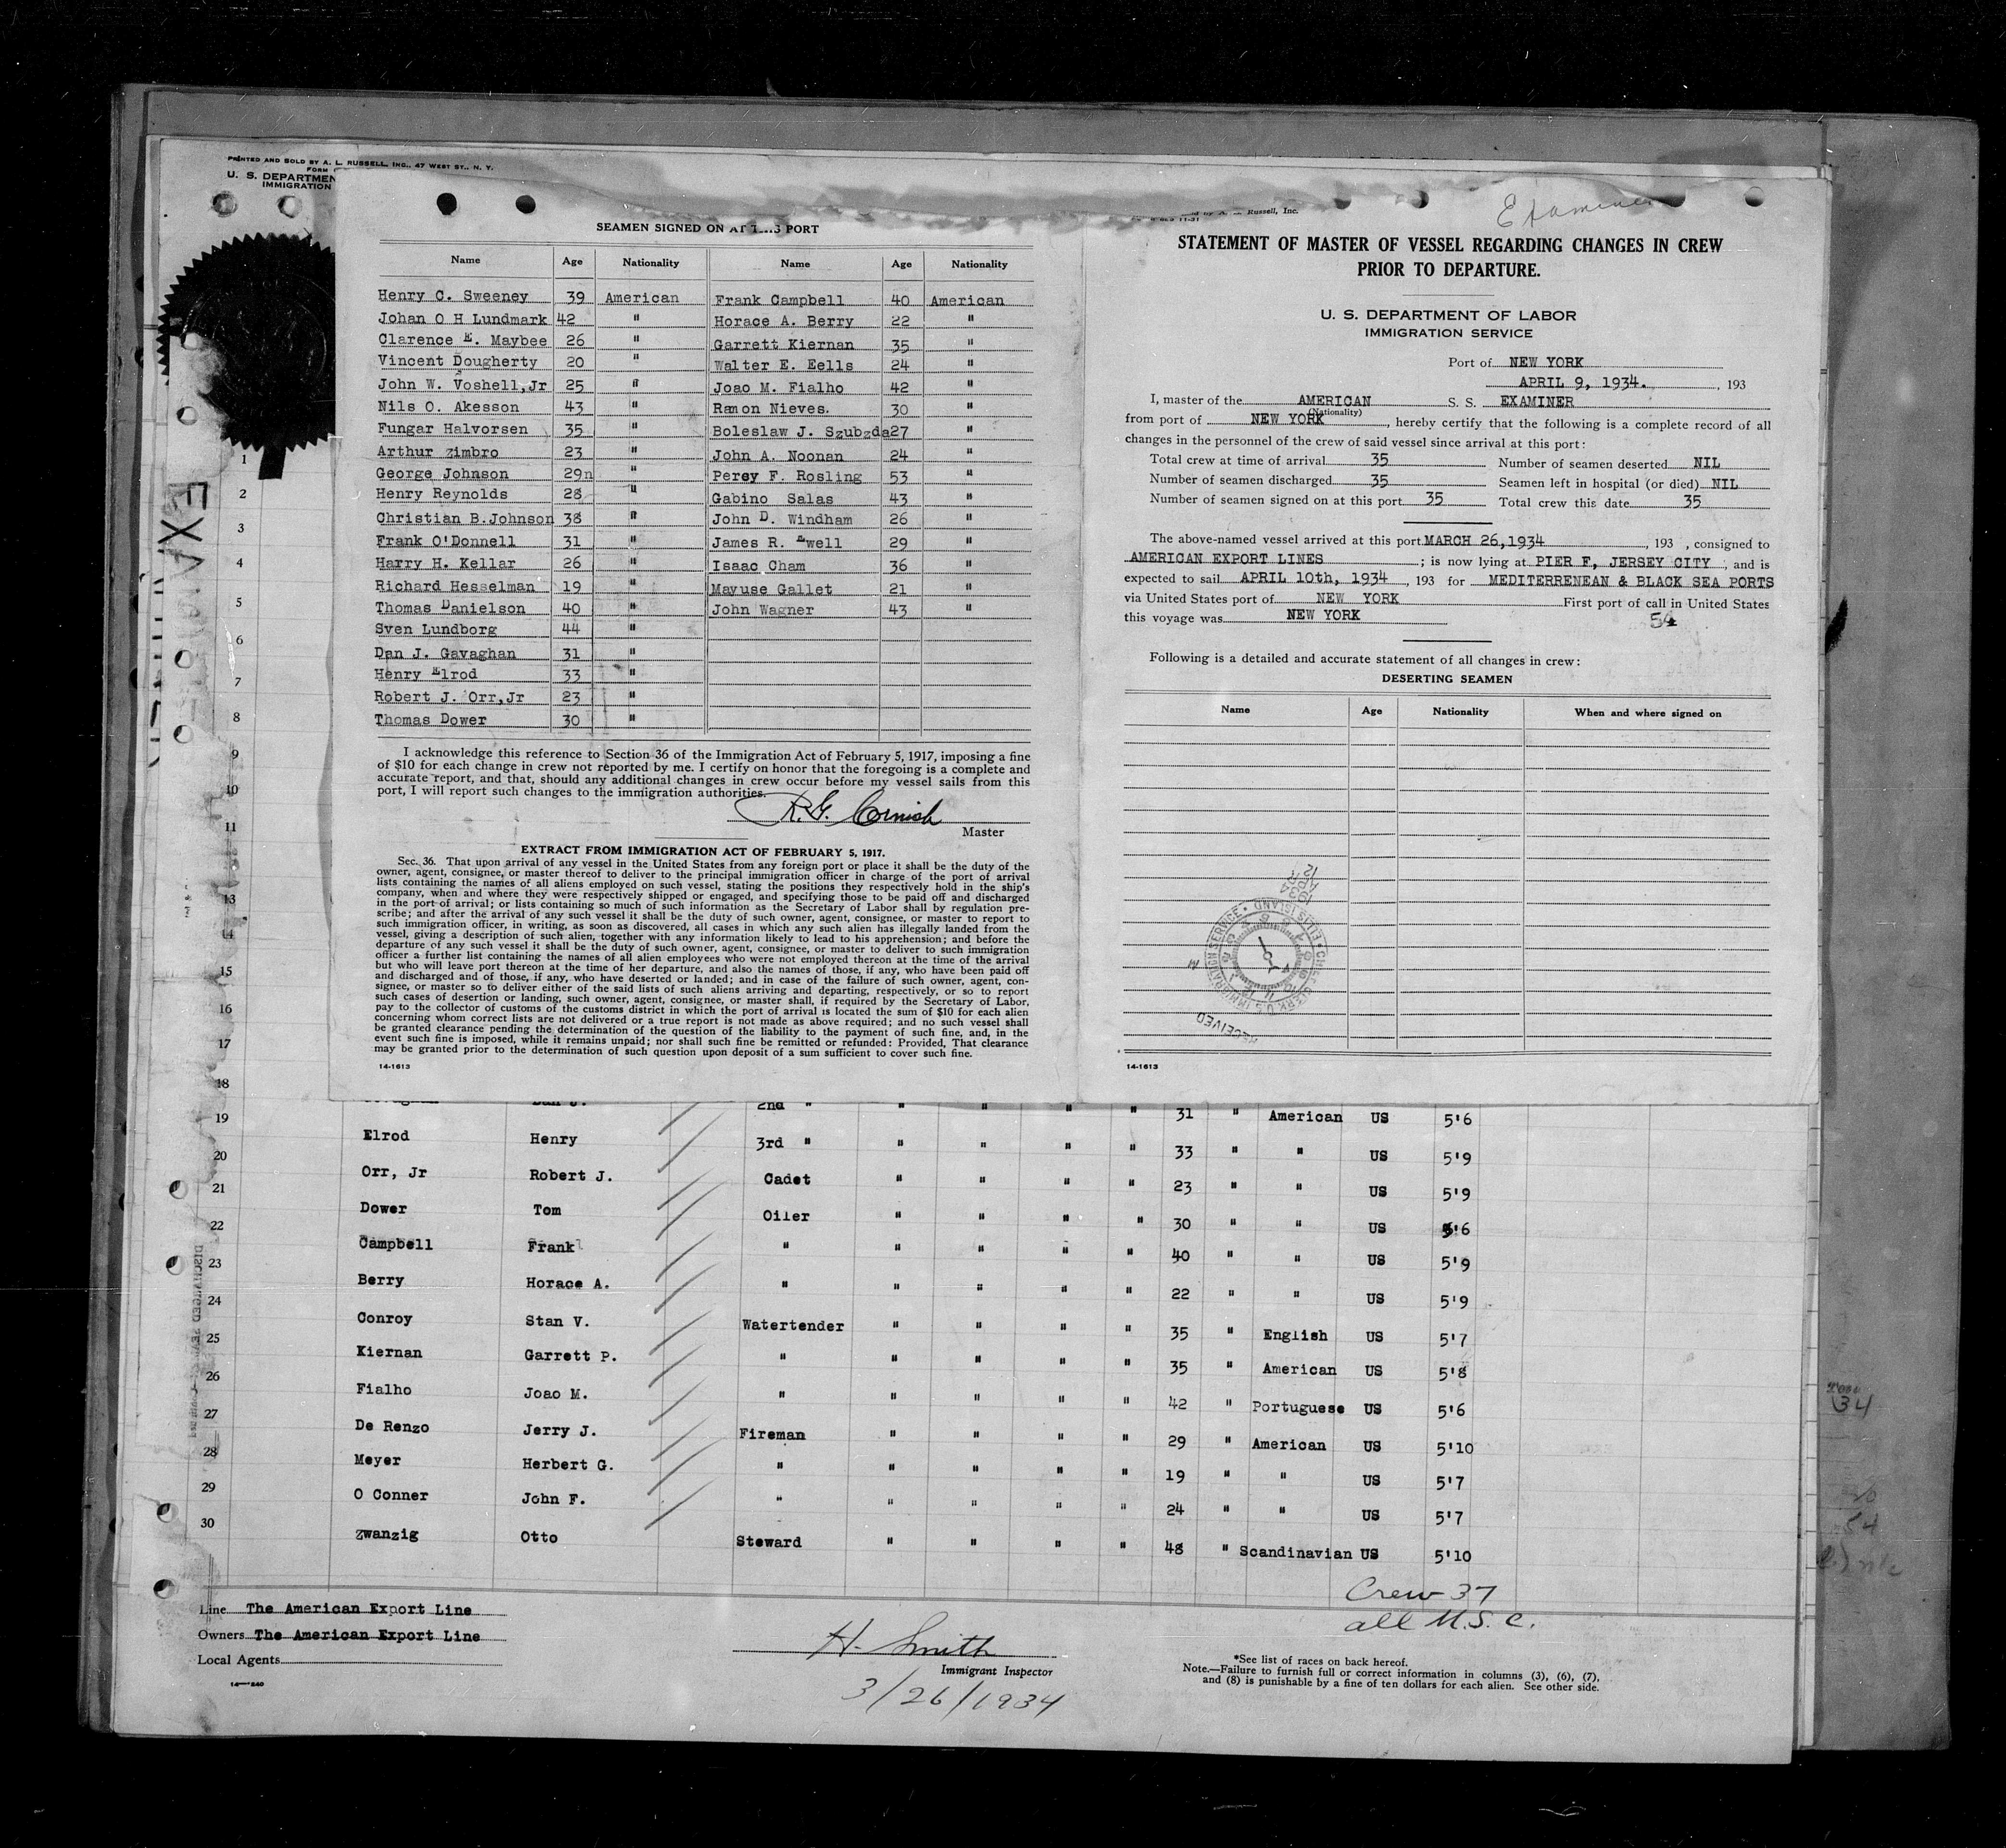 PRINTED AND SOLD BY A. L. RUSSELL, INC., 47 WEST ST., N. Y.
FORM
U. S. DEPARTMEN
IMMIGRATION
SEAMEN SIGNED ON AT THIS PORT
Name Age Nationality Name Age Nationality
Henry C. Sweeney 39 American Frank Campbell 40 American
Johan O H Lundmark 42 " Horace A. Berry 22 "
Clarence E. Maybee 26 " Garrett Kiernan 35 "
Vincent Dougherty 20 " Walter E. Eells 24 "
John W. Voshell,Jr 25 " Joao M. Fialho 42 "
Nils O. Akesson 43 " Ramon Nieves. 30 "
Fungar Halvorsen 35 " Boleslaw J. Szubzda 27 "
Arthur Zimbro 23 " John A. Noonan 24 "
George Johnson 29n " Percy F. Rosling 53 "
Henry Reynolds 28 " Gabino Salas 43 "
Christian B.Johnson 38 " John D. Windham 26 "
Frank O'Donnell 31 " James R. Ewell 29 "
Harry H. Kellar 26 " Isaac Cham 36 "
Richard Hesselman 19 " Mayuse Gallet 21 "
Thomas Danielson 40 " John Wagner 43 "
Sven Lundborg 44 "
Dan J. Gavaghan 31 "
Henry Elrod 33 "
Robert J. Orr,Jr 23 "
Thomas Dower 30 "
I acknowledge this reference to Section 36 of the Immigration Act of February 5, 1917, imposing a fine
of $10 for each change in crew not reported by me. I certify on honor that the foregoing is a complete and
accurate report, and that, should any additional changes in crew occur before my vessel sails from this
port, I will report such changes to the immigration authorities.
R.G. Cornish
Master
EXTRACT FROM IMMIGRATION ACT OF FEBRUARY 5, 1917.
Sec. 36. That upon arrival of any vessel in the United States from any foreign port or place it shall be the duty of the
owner, agent, consignee, or master thereof to deliver to the principal immigration officer in charge of the port of arrival
lists containing the names of all aliens employed on such vessel, stating the positions they respectively hold in the ship's
company, when and where they were respectively shipped or engaged, and specifying those to be paid off and discharged
in the port of arrival; or lists containing so much of such information as the Secretary of Labor shall by regulation pre-
scribe; and after the arrival of any such vessel it shall be the duty of such owner, agent, consignee, or master to report to
such immigration officer, in writing, as soon as discovered, all cases in which any such alien has illegally landed from the
vessel, giving a description of such alien, together with any information likely to lead to his apprehension; and before the
departure of any such vessel it shall be the duty of such owner, agent, consignee, or master to deliver to such immigration
officer a further list containing the names of all alien employees who were not employed thereon at the time of the arrival
but who will leave port thereon at the time of her departure, and also the names of those, if any, who have been paid off
and discharged and of those, if any, who have deserted or landed; and in case of the failure of such owner, agent, con-
signee, or master so to deliver either of the said lists of such aliens arriving and departing, respectively, or so to report
such cases of desertion or landing, such owner, agent, consignee, or master shall, if required by the Secretary of Labor,
pay to the collector of customs of the customs district in which the port of arrival is located the sum of $10 for each alien
concerning whom correct lists are not delivered or a true report is not made as above required; and no such vessel shall
be granted clearance pending the determination of the question of the liability to the payment of such fine, and, in the
event such fine is imposed, while it remains unpaid; nor shall such fine be remitted or refunded: Provided, That clearance
may be granted prior to the determination of such question upon deposit of a sum sufficient to cover such fine.
14-1613
Russell, Inc.
Examiner
STATEMENT OF MASTER OF VESSEL REGARDING CHANGES IN CREW
PRIOR TO DEPARTURE.
U. S. DEPARTMENT OF LABOR
IMMIGRATION SERVICE
Port of NEW YORK
APRIL 9, 1934. , 193
I, master of the AMERICAN S. S. EXAMINER
(Nationality)
from port of NEW YORK , hereby certify that the following is a complete record of all
changes in the personnel of the crew of said vessel since arrival at this port:
Total crew at time of arrival 35 Number of seamen deserted NIL
Number of seamen discharged 35 Seamen left in hospital (or died) NIL
Number of seamen signed on at this port 35 Total crew this date 35
The above-named vessel arrived at this port MARCH 26,1934 , 193 , consigned to
AMERICAN EXPORT LINES ; is now lying at PIER F, JERSEY CITY , and is
expected to sail APRIL 10th, 1934 , 193 for MEDITERRENEAN & BLACK SEA PORTS
via United States port of NEW YORK First port of call in United States
this voyage was NEW YORK
54
Following is a detailed and accurate statement of all changes in crew:
DESERTING SEAMEN
Name Age Nationality When and where signed on
1934
APR
12
CHIEF CLERK U.S. IMMIGRATION SERVICE • ELLIS ISLAND •
RECEIVED
14-1613
EXA
1
2
3
4
5
6
7
8
9
10
11
13
14
15
16
17
18
19 Dan J. 2nd " " " " " 31 " American US 5'6
20 Elrod Henry 3rd " " " " " 33 " " US 5'9
21 Orr, Jr Robert J. Cadet " " " " 23 " " US 5'9
22 Dower Tom Oiler " " " " 30 " " US 5'6
23 Campbell Frank " " " " " 40 " " US 5'9
24 Berry Horace A. " " " " " 22 " " US 5'9
25 Conroy Stan V. Watertender " " " " 35 " English US 5'7
26 Kiernan Garrett P. " " " " " 35 " American US 5'8
27 Fialho Joao M. " " " " " 42 " Portuguese US 5'6
28 De Renzo Jerry J. Fireman " " " " 29 " American US 5'10
29 Meyer Herbert G. " " " " " 19 " " US 5'7
30 O Conner John F. " " " " " 24 " " US 5'7
Zwanzig Otto Steward " " " " 48 " Scandinavian US 5'10
Crew 37
all U.S.C.
Line The American Export Line
Owners The American Export Line
Local Agents
H. Smith
Immigrant Inspector
3/26/1934
*See list of races on back hereof.
Note.—Failure to furnish full or correct information in columns (3), (6), (7),
and (8) is punishable by a fine of ten dollars for each alien. See other side.
34